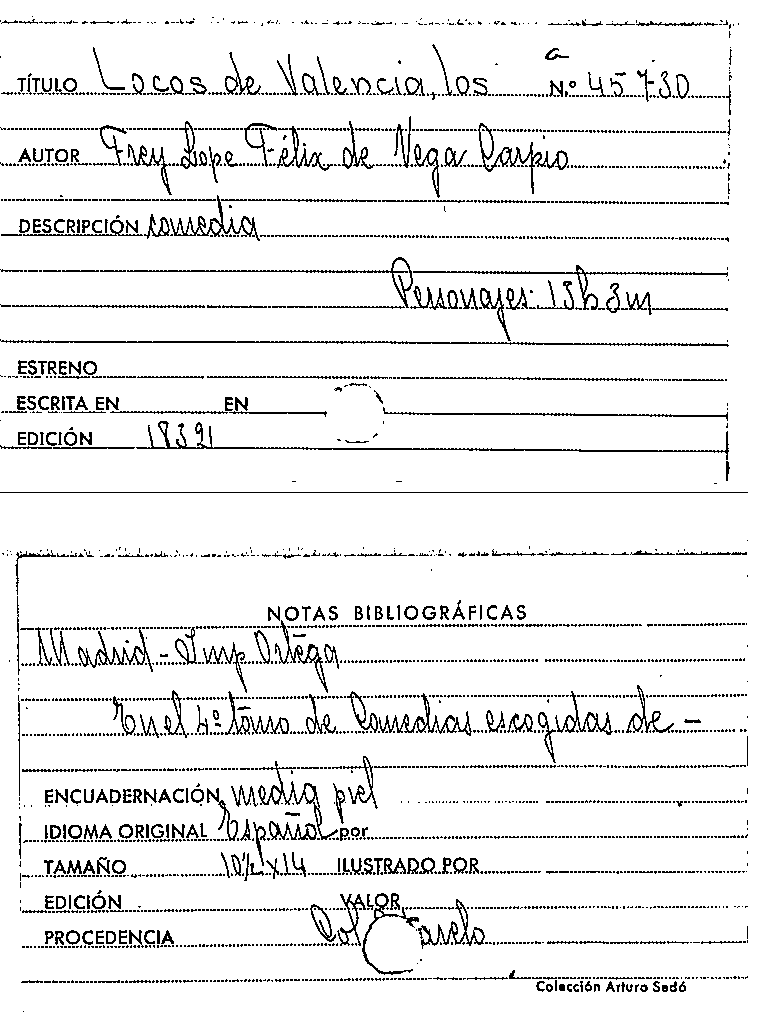 a
TÍTULO Locos de Valencia, los N.º 45730
AUTOR Frey Lope Félix de Vega Carpio
DESCRIPCIÓN comedia
Personajes: 13h 3m
ESTRENO
ESCRITA EN EN
EDICIÓN
NOTAS BIBLIOGRÁFICAS
Madrid - Imp Ortega
En el 4º tomo de Comedias escogidas de -
ENCUADERNACIÓN media piel
IDIOMA ORIGINAL Español por
TAMAÑO 10½ x 14 ILUSTRADO POR
EDICIÓN VALOR
PROCEDENCIA Col
Colección Arturo Sedó